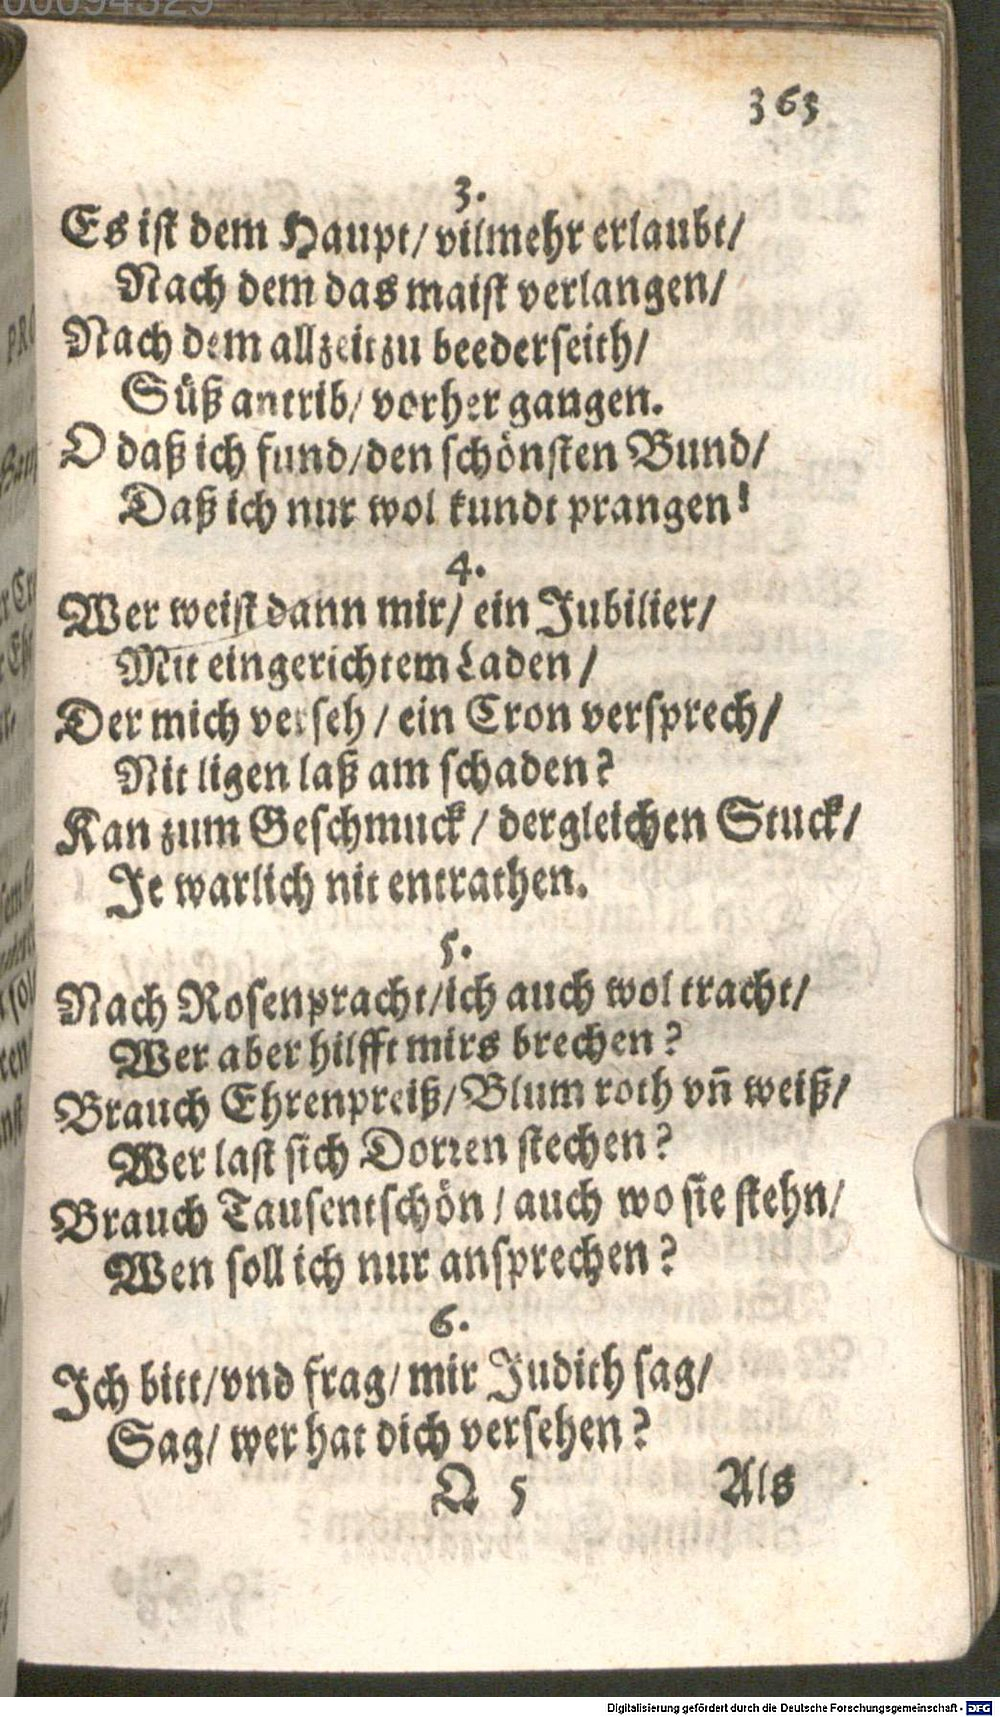 00094329
363
3.
Es ist dem Haupt/ vilmehr erlaubt/
Nach dem das maist verlangen/
Nach dem allzeit zu beederseith/
Süß antrib/ vorher gangen.
O daß ich fund/den schönsten Bund/
Daß ich nur wol kundt prangen!
4.
Wer weist dann mir/ ein Jubilier/
Mit eingerichtem Laden /
Der mich verseh / ein Cron versprech/
Nit ligen laß am schaden?
Kan zum Geschmuck / dergleichen Stuck/
Je warlich nit entrathen.
5.
Nach Rosenpracht/ich auch wol tracht/
Wer aber hilfft mirs brechen?
Brauch Ehrenpreiß/Blum roth vñ weiß/
Wer last sich Dornen stechen?
Brauch Tausentschön / auch wo sie stehn/
Wen soll ich nur ansprechen?
6.
Ich bitt/vnd frag/ mir Judith sag/
Sag/ wer hat dich versehen?
Q 5 Als
Digitalisierung gefördert durch die Deutsche Forschungsgemeinschaft - DFG